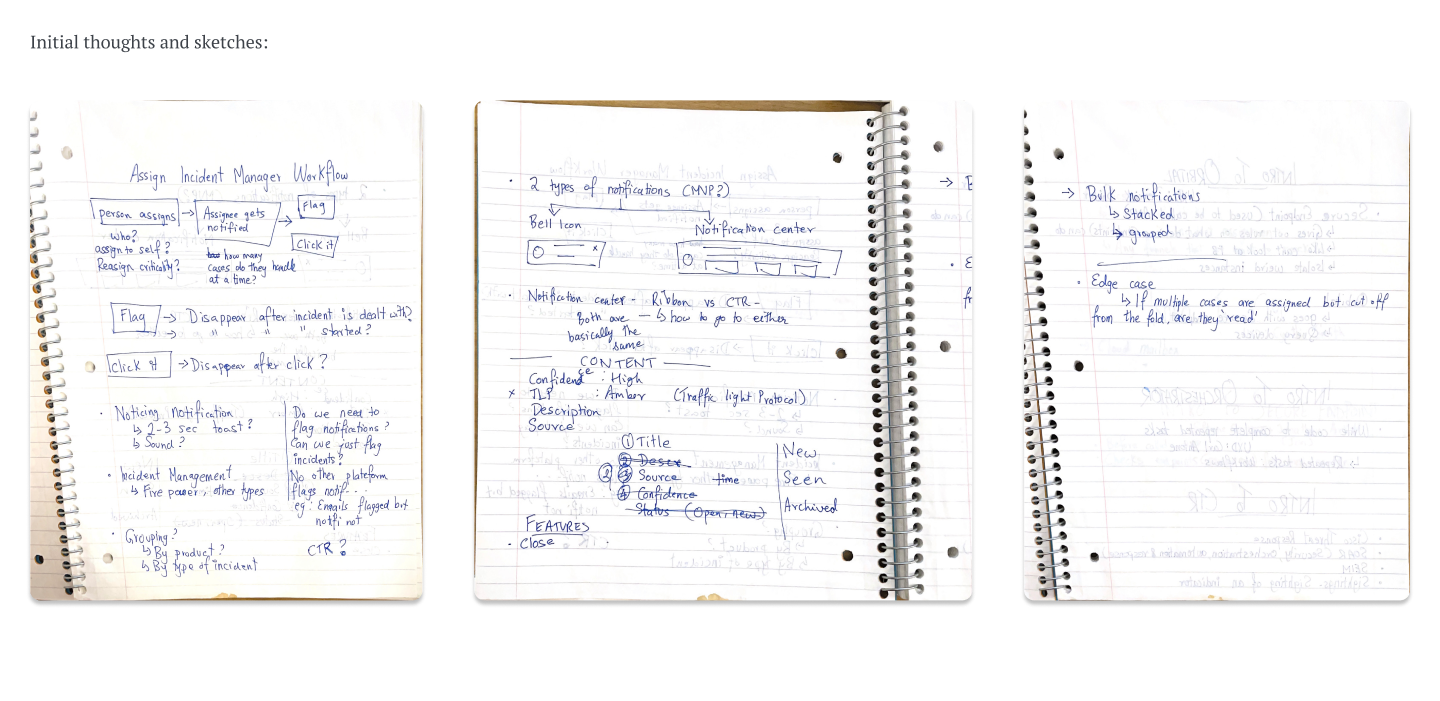 Initial thoughts and sketches:
Assign Incident Manager Workflow
person assigns → Assignee gets notified → Flag
Click it
who?
assign to self?
Reasign criticality?
how many
cases do they handle
at a time?
Flag → Disappear after incident is dealt with?
→ " " " " started?
Click it → Disappear after click?
• Noticing notification
↳ 2-3 sec toast?
↳ Sound?
• Incident Management
↳ Fire power, other types
• Grouping?
↳ By product?
↳ By type of incident
Do we need to
flag notifications?
Can we just flag
incidents?
No other plateform
flags notif...
eg: Emails flagged but
notifi not
CTR?
• 2 types of notifications (MVP?)
Bell Icon
Notification center
• Notification center - Ribbon vs CTR -
Both are — ↳ how to go to either
basically the
same
CONTENT
Confidence : High
x TLP : Amber (Traffic light Protocol)
Description
Source
① Title
② Descr
② ③ Source time
④ Confidence
Status (Open, new)
New
Seen
Archived
FEATURES
• Close
→ Bulk notifications
↳ Stacked
↳ grouped
• Edge case
↳ If multiple cases are assigned but cut off
from the fold, are they 'read'